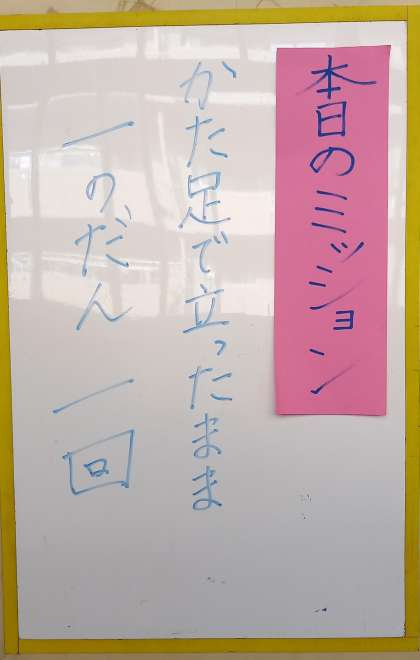 本日のミッション
かた足で立ったまま
一のだん 一回